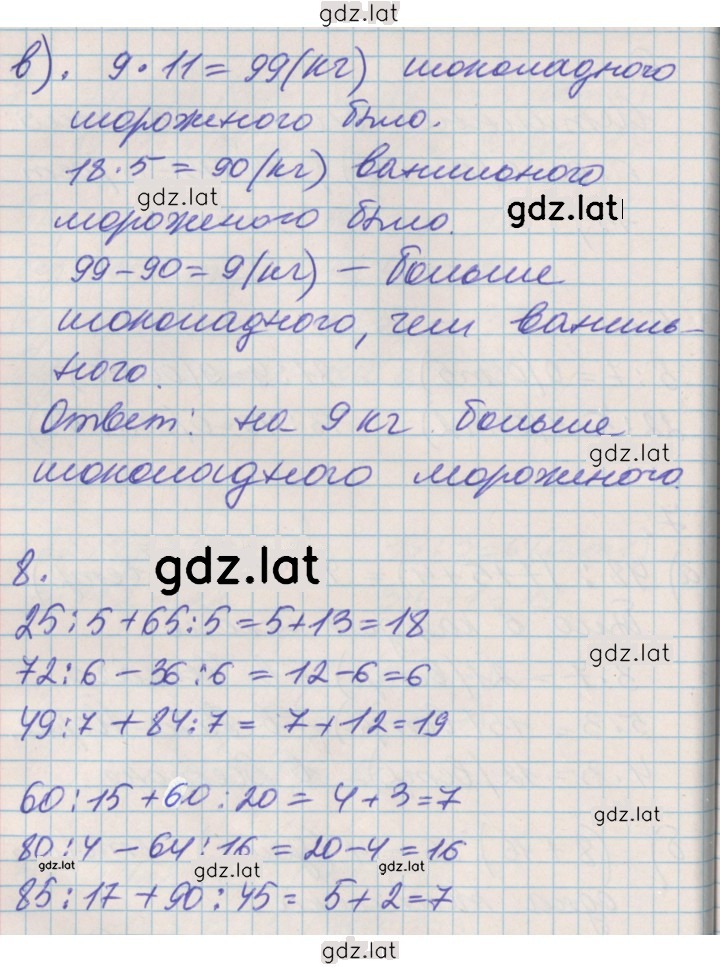 gdz.lat
в). 9·11=99(кг) шоколадного
мороженого было.
18·5=90(кг) ванильного
gdz.lat
gdz.lat
мороженого было.
99-90=9(кг) - больше
шоколадного, чем ваниль-
ного.
Ответ: на 9 кг больше
gdz.lat
шоколадного мороженого.
8. gdz.lat
25:5+65:5=5+13=18
gdz.lat
72:6-36:6=12-6=6
49:7+84:7=7+12=19
60:15+60:20=4+3=7
gdz.lat
80:4-64:16=20-4=16
gdz.lat gdz.lat gdz.lat
85:17+90:45=5+2=7
gdz.lat